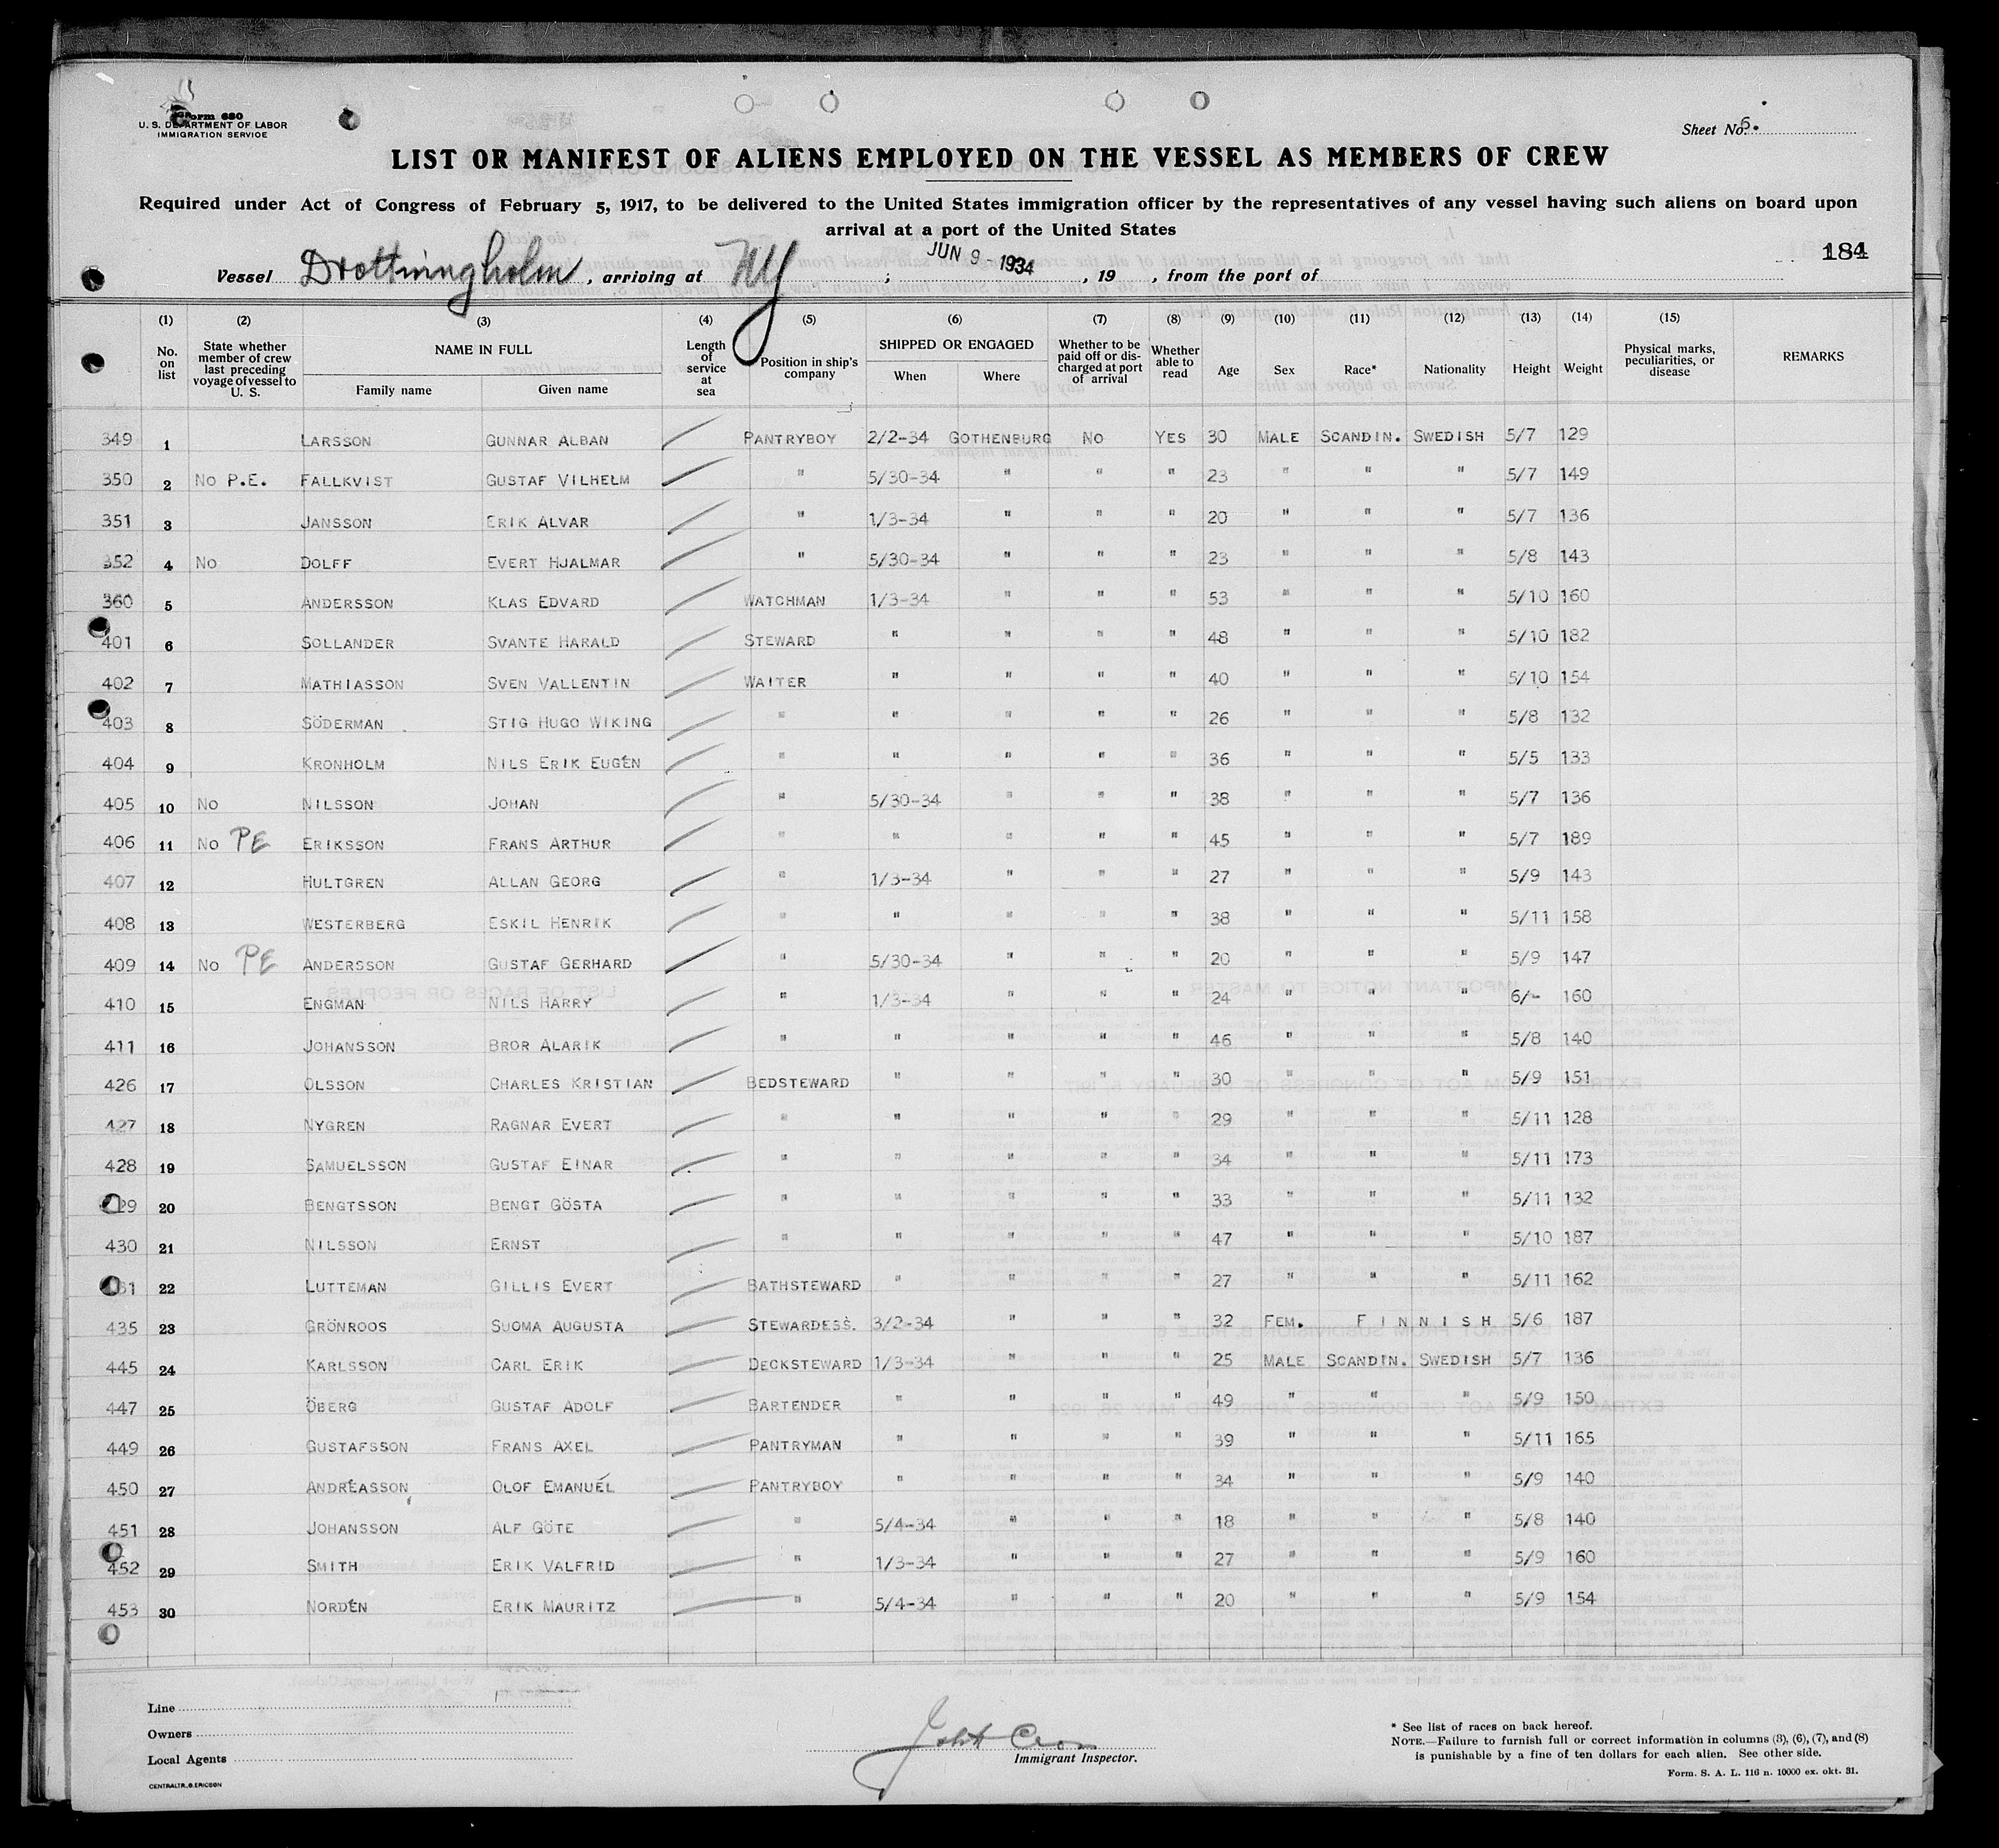 Form 680
U. S. DEPARTMENT OF LABOR
IMMIGRATION SERVICE
Sheet No. 6.
LIST OR MANIFEST OF ALIENS EMPLOYED ON THE VESSEL AS MEMBERS OF CREW
Required under Act of Congress of February 5, 1917, to be delivered to the United States immigration officer by the representatives of any vessel having such aliens on board upon
arrival at a port of the United States
184
Vessel Drottningholm, arriving at NY ; JUN 9 - 1934, 19 , from the port of
(1) (2) (3) (4) (5) (6) (7) (8) (9) (10) (11) (12) (13) (14) (15)
No. on list State whether member of crew last preceding voyage of vessel to U. S. NAME IN FULL Family name Given name Length of service at sea Position in ship's company SHIPPED OR ENGAGED When Where Whether to be paid off or discharged at port of arrival Whether able to read Age Sex Race* Nationality Height Weight Physical marks, peculiarities, or disease REMARKS
349 1 LARSSON GUNNAR ALBAN PANTRYBOY 2/2-34 GOTHENBURG NO YES 30 MALE SCANDIN. SWEDISH 5/7 129
350 2 NO P.E. FALLKVIST GUSTAF VILHELM " 5/30-34 " " " 23 " " " 5/7 149
351 3 JANSSON ERIK ALVAR " 1/3-34 " " " 20 " " " 5/7 136
352 4 NO DOLFF EVERT HJALMAR " 5/30-34 " " " 23 " " " 5/8 143
360 5 ANDERSSON KLAS EDVARD WATCHMAN 1/3-34 " " " 53 " " " 5/10 160
401 6 SOLLANDER SVANTE HARALD STEWARD " " " " 48 " " " 5/10 182
402 7 MATHIASSON SVEN VALLENTIN WAITER " " " " 40 " " " 5/10 154
403 8 SÖDERMAN STIG HUGO WIKING " " " " " 26 " " " 5/8 132
404 9 KRONHOLM NILS ERIK EUGÉN " " " " " 36 " " " 5/5 133
405 10 NO NILSSON JOHAN " 5/30-34 " " " 38 " " " 5/7 136
406 11 NO PE ERIKSSON FRANS ARTHUR " " " " " 45 " " " 5/7 189
407 12 HULTGREN ALLAN GEORG " 1/3-34 " " " 27 " " " 5/9 143
408 13 WESTERBERG ESKIL HENRIK " " " " " 38 " " " 5/11 158
409 14 NO PE ANDERSSON GUSTAF GERHARD " 5/30-34 " " " 20 " " " 5/9 147
410 15 ENGMAN NILS HARRY " 1/3-34 " " " 24 " " " 6/- 160
411 16 JOHANSSON BROR ALARIK " " " " " 46 " " " 5/8 140
426 17 OLSSON CHARLES KRISTIAN BEDSTEWARD " " " " 30 " " " 5/9 151
427 18 NYGREN RAGNAR EVERT " " " " " 29 " " " 5/11 128
428 19 SAMUELSSON GUSTAF EINAR " " " " " 34 " " " 5/11 173
429 20 BENGTSSON BENGT GÖSTA " " " " " 33 " " " 5/11 132
430 21 NILSSON ERNST " " " " " 47 " " " 5/10 187
22 LUTTEMAN GILLIS EVERT BATHSTEWARD " " " " 27 " " " 5/11 162
435 23 GRÖNROOS SUOMA AUGUSTA STEWARDESS. 3/2-34 " " " 32 FEM. FINNISH 5/6 187
445 24 KARLSSON CARL ERIK DECKSTEWARD 1/3-34 " " " 25 MALE SCANDIN. SWEDISH 5/7 136
447 25 ÖBERG GUSTAF ADOLF BARTENDER " " " " 49 " " " 5/9 150
449 26 GUSTAFSSON FRANS AXEL PANTRYMAN " " " " 39 " " " 5/11 165
450 27 ANDRÉASSON OLOF EMANUÉL PANTRYBOY " " " " 34 " " " 5/9 140
451 28 JOHANSSON ALF GÖTE " 5/4-34 " " " 18 " " " 5/8 140
452 29 SMITH ERIK VALFRID " 1/3-34 " " " 27 " " " 5/9 160
453 30 NORDÉN ERIK MAURITZ " 5/4-34 " " " 20 " " " 5/9 154
Line
Owners
Local Agents
CENTRALTR. G. ERICSON
Immigrant Inspector.
* See list of races on back hereof.
NOTE.—Failure to furnish full or correct information in columns (3), (6), (7), and (8)
is punishable by a fine of ten dollars for each alien. See other side.
Form. S. A. L. 116 n. 10000 ex. okt. 31.